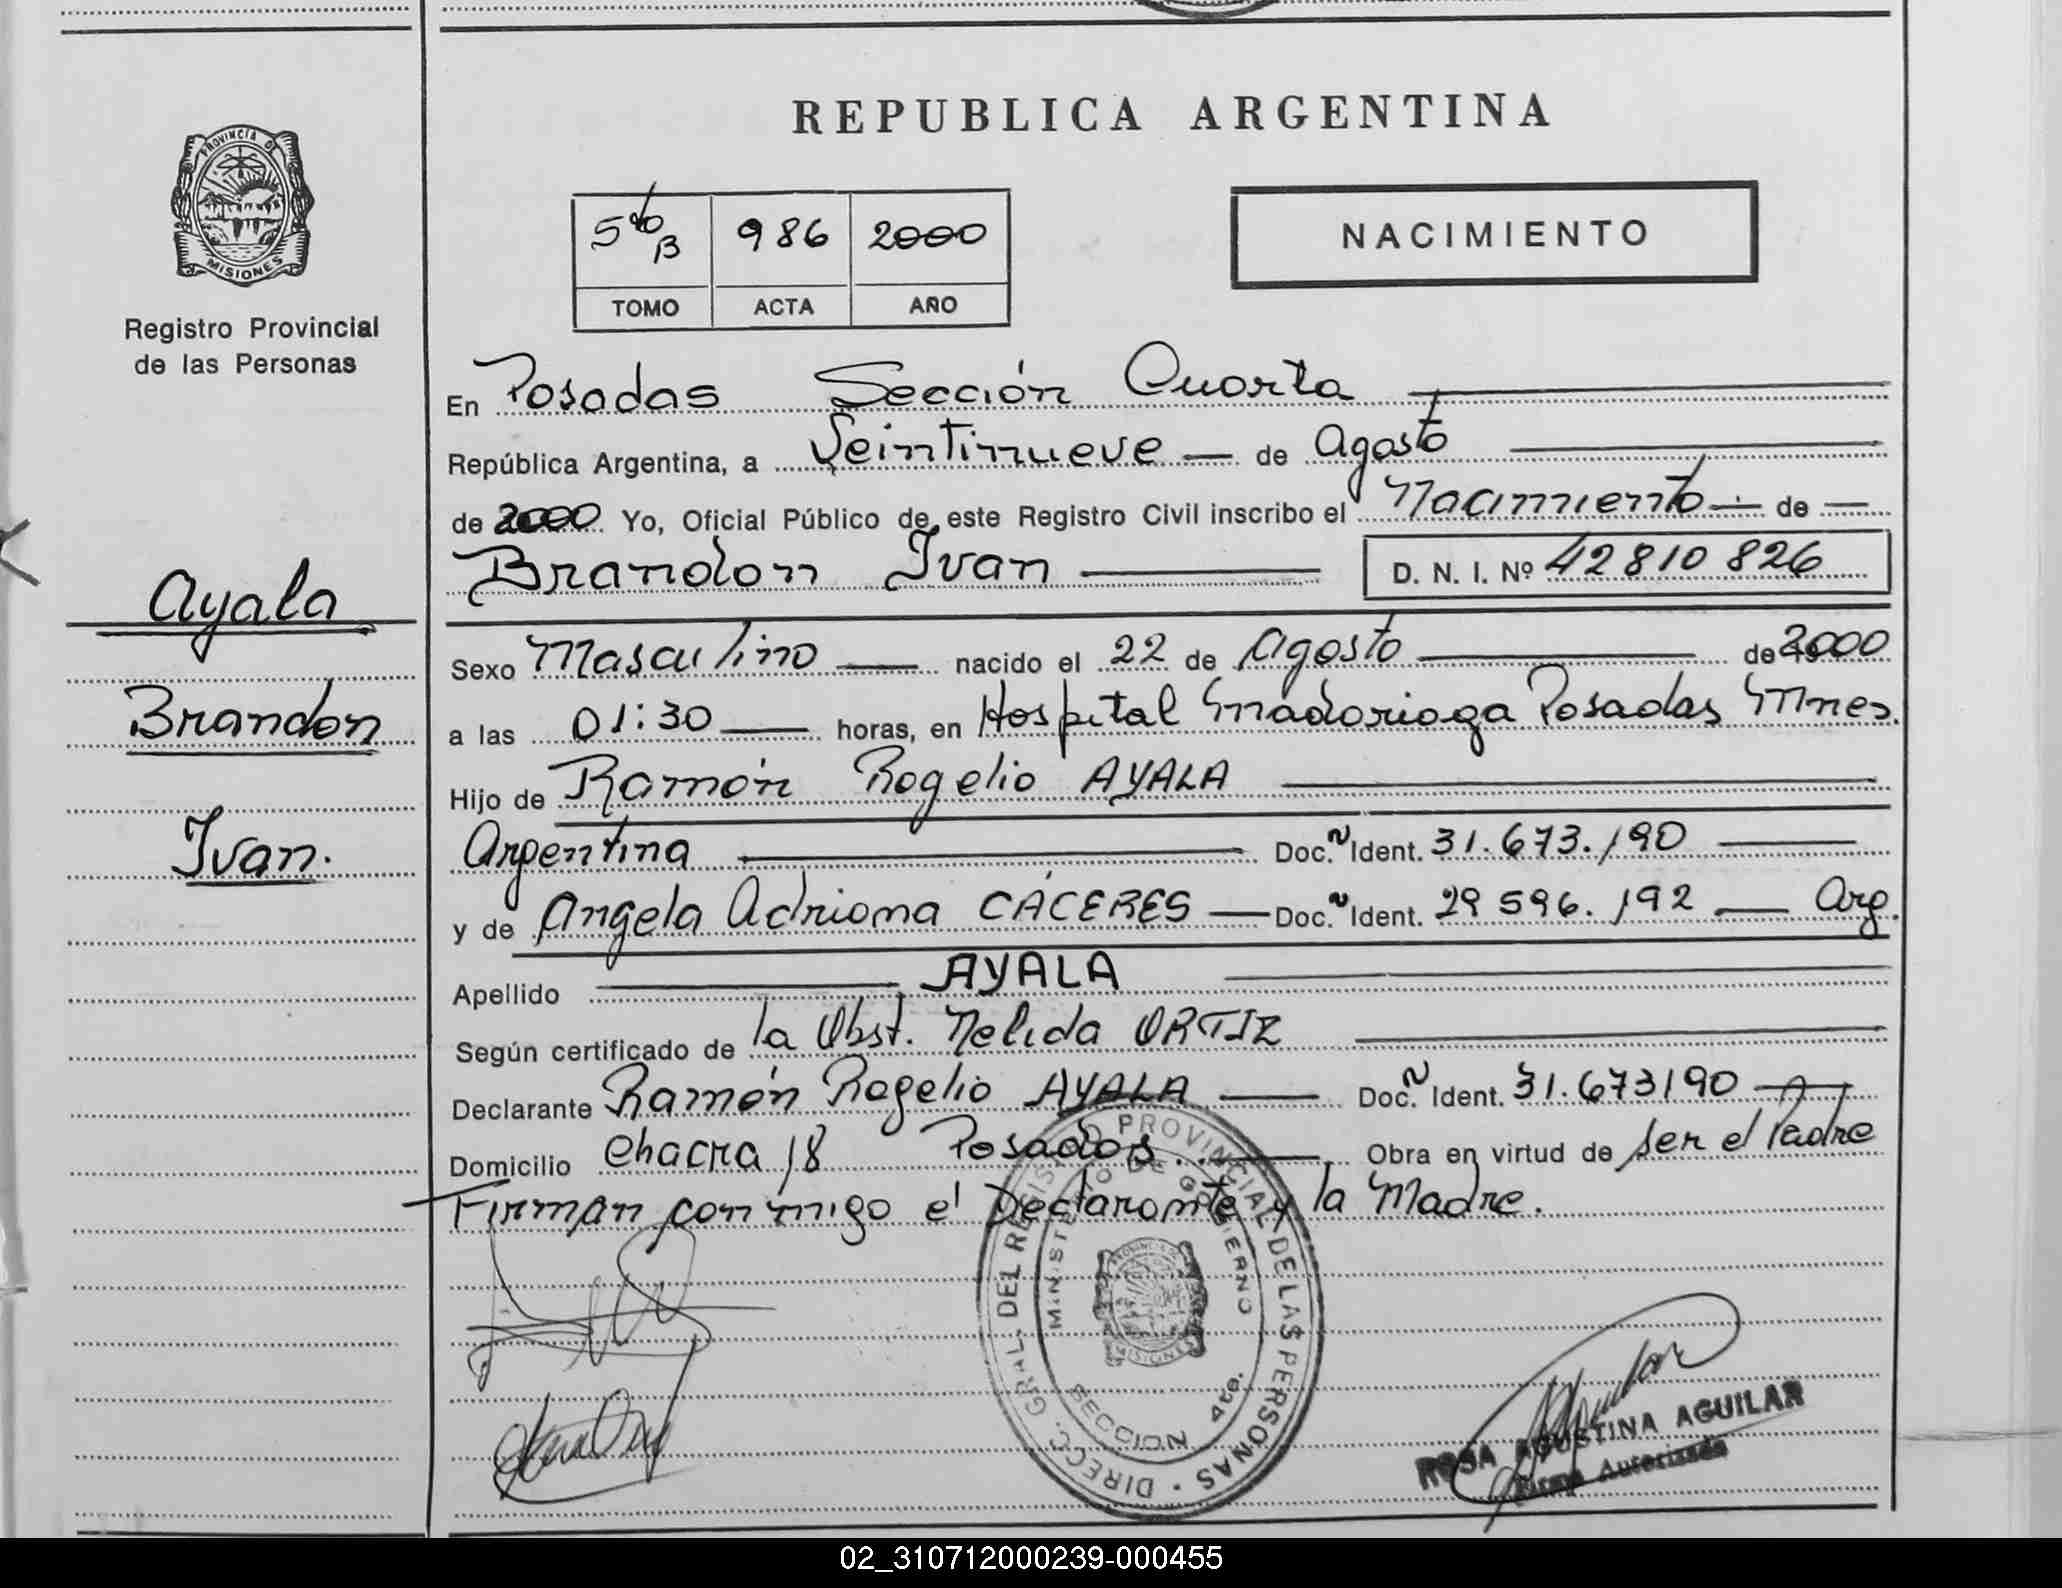 REPUBLICA ARGENTINA
PROVINCIA DE
MISIONES
Registro Provincial
de las Personas
5to B 986 2000
TOMO ACTA AÑO
NACIMIENTO
En Posadas Sección Cuarta
República Argentina, a Veintinueve de Agosto
de 2000 Yo, Oficial Público de este Registro Civil inscribo el Nacimiento de
Brandon Ivan D. N. I. Nº 42810826
Ayala
Brandon
Ivan.
Sexo Masculino nacido el 22 de Agosto de 2000
a las 01:30 horas, en Hospital Madoriaga Posadas Mnes.
Hijo de Ramón Rogelio AYALA
Argentina Doc. Ident. 31.673.190
y de Angela Adriana CÁCERES Doc. Ident. 29 596.192 Arg.
Apellido AYALA
Según certificado de la Obst. Nelida ORTIZ
Declarante Ramón Rogelio AYALA Doc. Ident. 31.673190
Domicilio Chacra 18 Posadas Obra en virtud de ser el Padre
Firman conmigo el Declarante y la Madre.
DIRECC. GRAL. DEL REGISTRO PROVINCIAL DE LAS PERSONAS
MINISTERIO DE GOBIERNO
PROVINCIA DE
MISIONES
SECCION 4ta.
ROSA AGUSTINA AGUILAR
Firma Autorizada
02_310712000239-000455